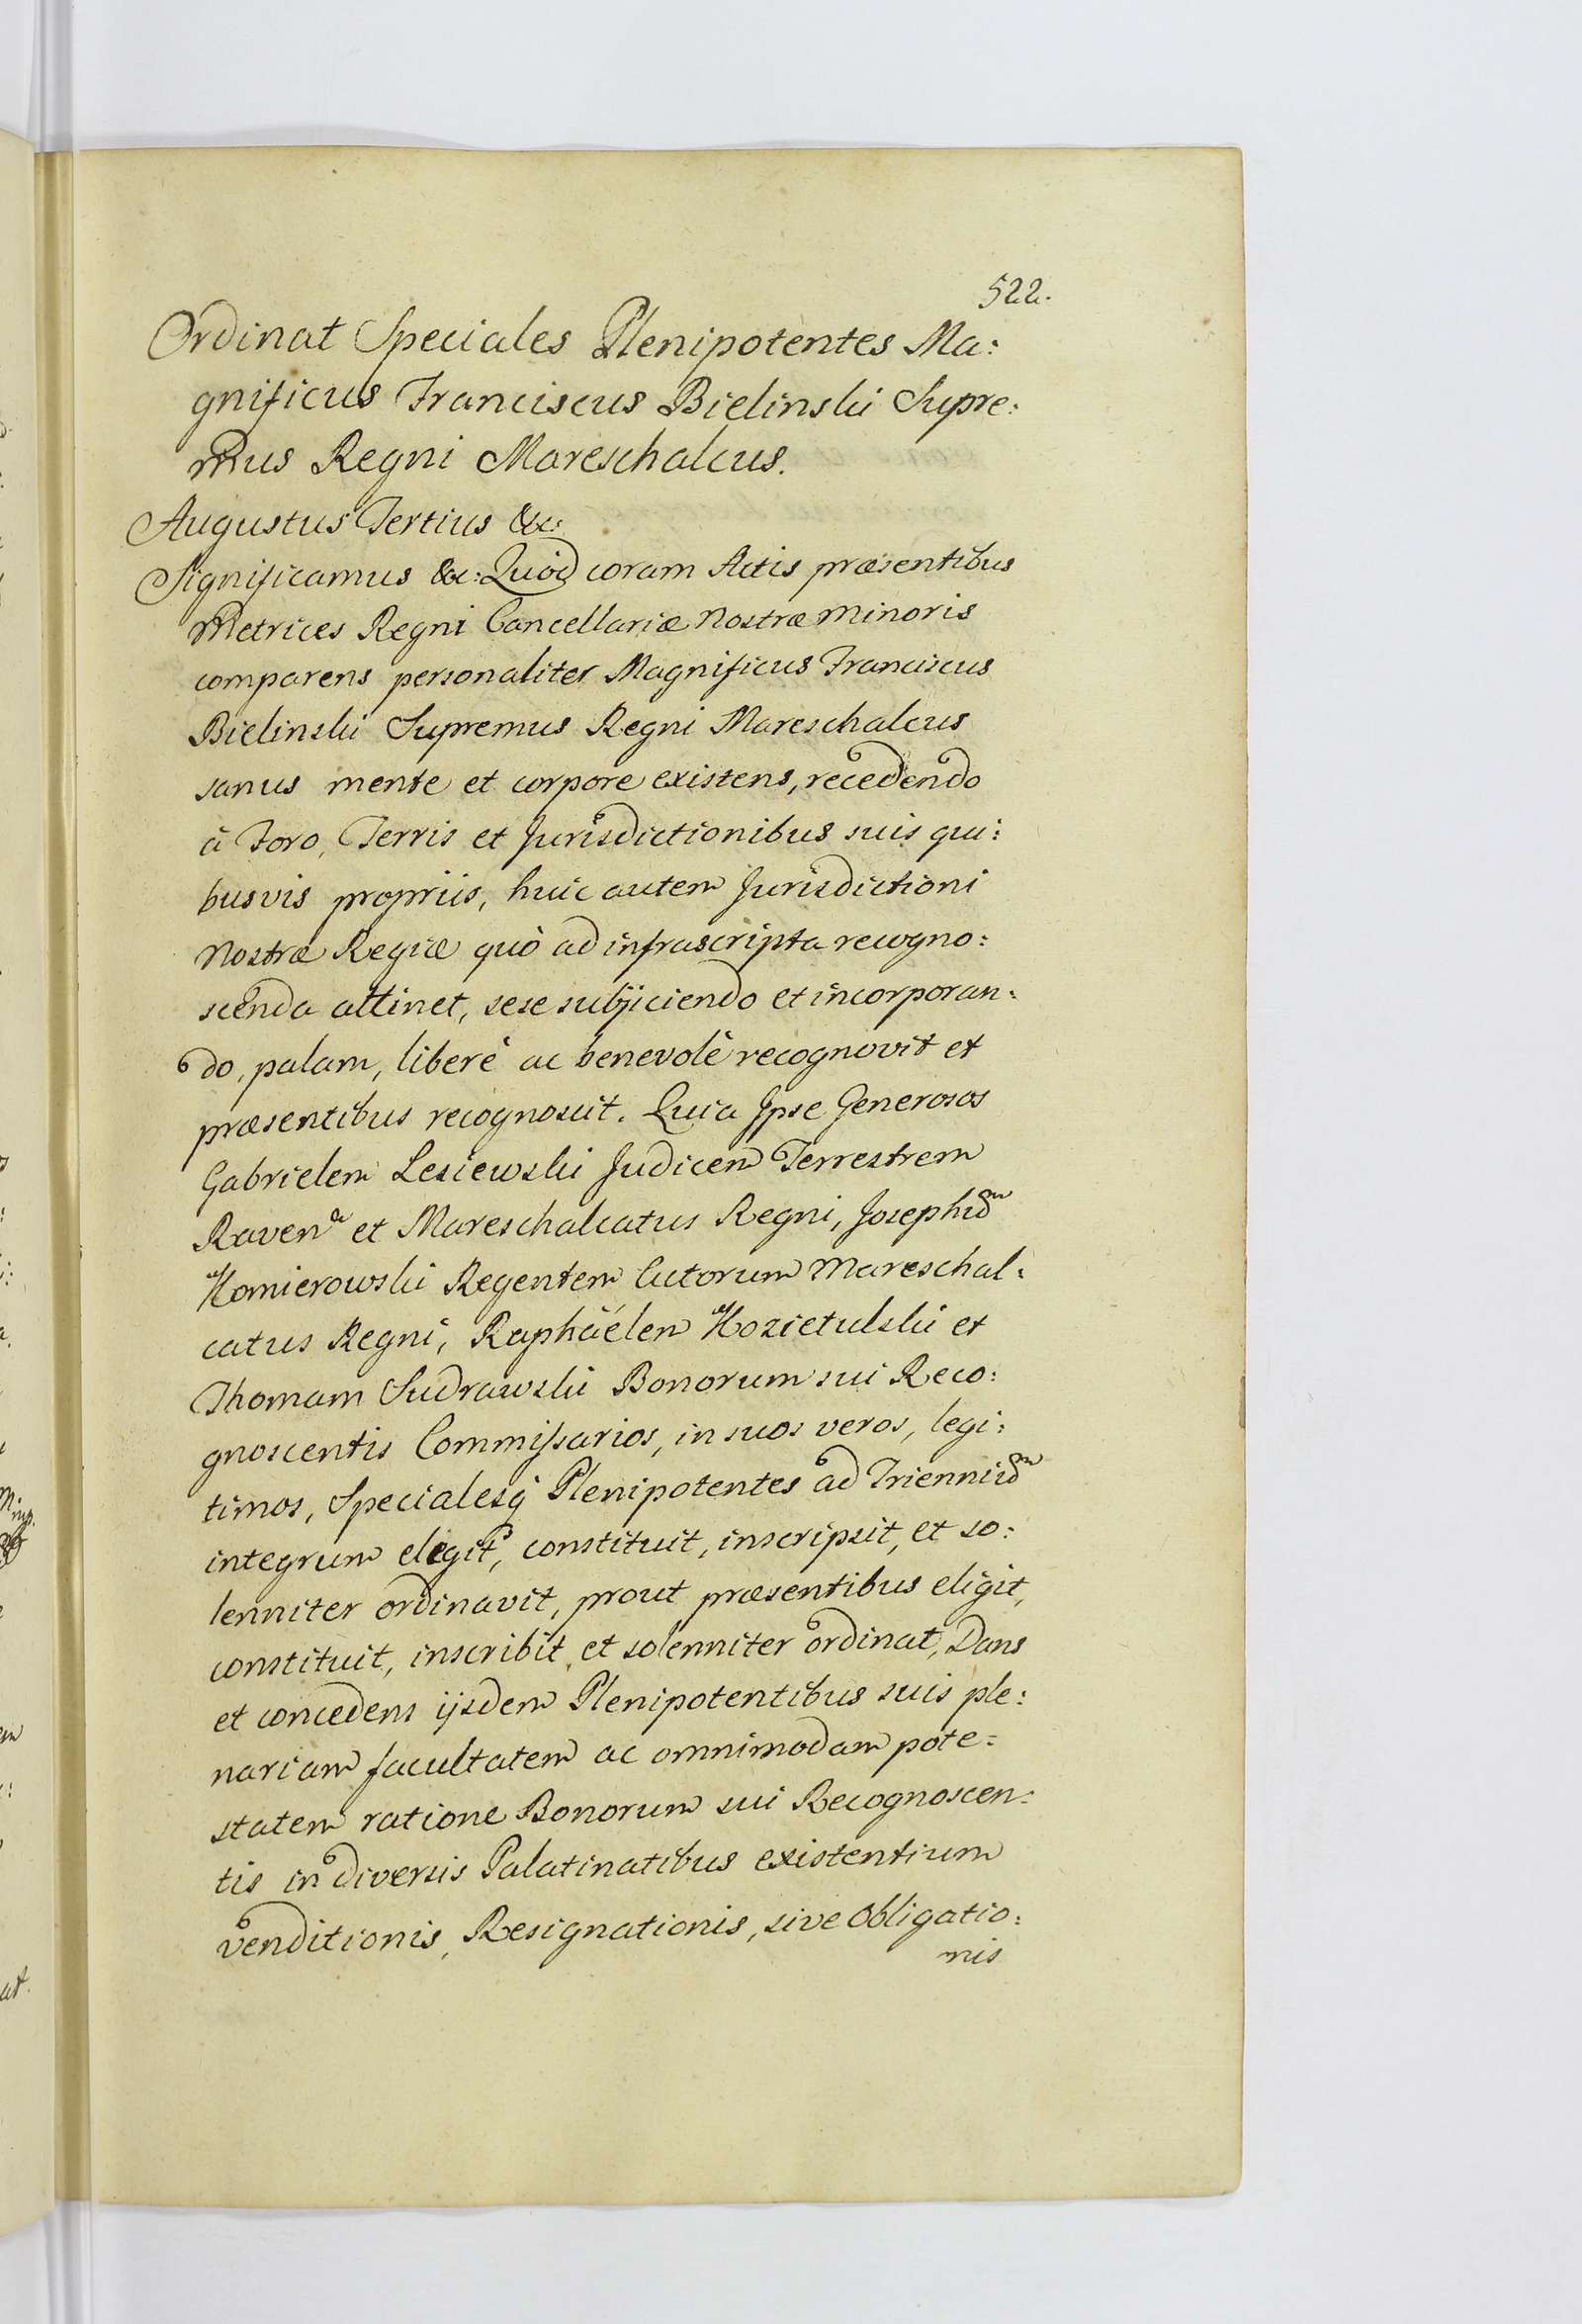 522.
Ordinat Speciales Plenipotentes Ma:
gnificus Franciscus Bielinski Supre:
mus Regni Mareschalcus.
Augustus Tertius &c:
Significamus &c: Quod coram Actis præsentibus
Metrices Regni Cancellariæ Nostræ Minoris
comparens personaliter Magnificus Franciscus
Bielinski Supremus Regni Mareschalcus
sanus mente et corpore existens, recedendo
à Foro, Terris et Jurisdictionibus suis qui:
busvis propriis, huic autem Jurisdictioni
Nostræ Regiæ quò ad infrascripta recogno:
scenda attinet, sese subjiciendo et incorporan:
do, palam, liberè ac benevolè recognovit et
præsentibus recognoscit. Quia Ipse Generosos
Gabrielem Lesiewski Judicem Terrestrem
Raven: et Mareschalcatus Regni, Josephum
Komierowski Regentem Actorum Mareschal:
catus Regni, Raphaélem Kozietulski et
Thomam Sudrawski Bonorum sui Reco:
gnoscentis Commissarios, in suos veros, legi:
timos, Specialesq Plenipotentes ad Triennium
integrum elegit, constituit, inscripsit, et so:
lenniter ordinavit, prout præsentibus eligit,
constituit, inscribit et solenniter ordinat, Dans
et concedens ijsdem Plenipotentibus suis ple:
nariam facultatem ac omnimodam pote:
statem ratione Bonorum sui Recognoscen:
tis in diversis Palatinatibus existentium
venditionis, Resignationis, sive Obligatio:
nis